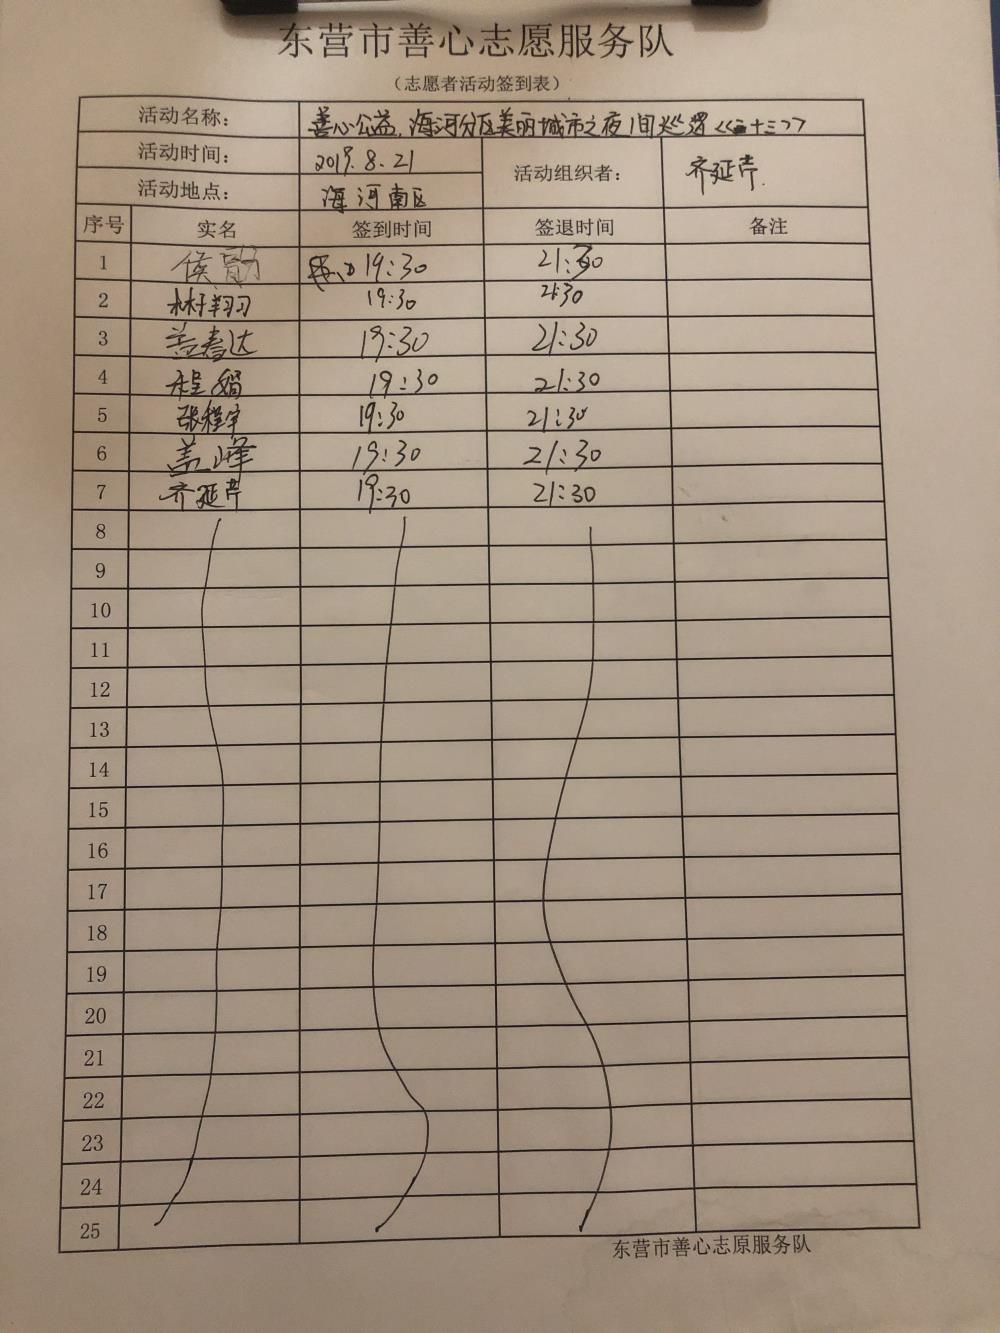 东营市善心志愿服务队
（志愿者活动签到表）
活动名称： 善心公益，海河分区美丽城市之夜间巡逻《二十三》
活动时间： 2019.8.21 活动组织者： 齐延芹
活动地点： 海河南区
序号 实名 签到时间 签退时间 备注
1 侯 19:30 21:30
2 林翔 19:30 21:30
3 盖春达 19:30 21:30
4 程娟 19:30 21:30
5 张程宇 19:30 21:30
6 盖峰 19:30 21:30
7 齐延芹 19:30 21:30
8
9
10
11
12
13
14
15
16
17
18
19
20
21
22
23
24
25
东营市善心志原服务队